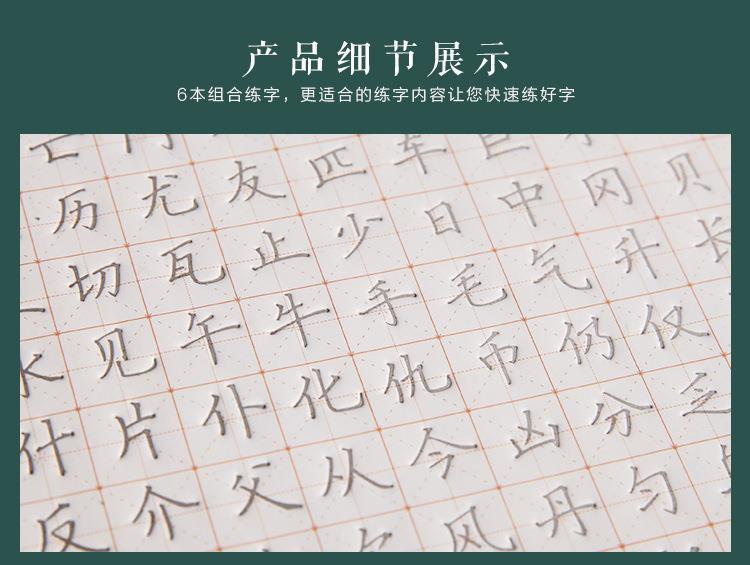 产品细节展示
6本组合练字，更适合的练字内容让您快速练好字
历尤友匹车巨
切瓦止少日中冈贝
见午牛手毛气升长
片仆化仇币仍仅
什介父从今凶分乏
反风丹匀